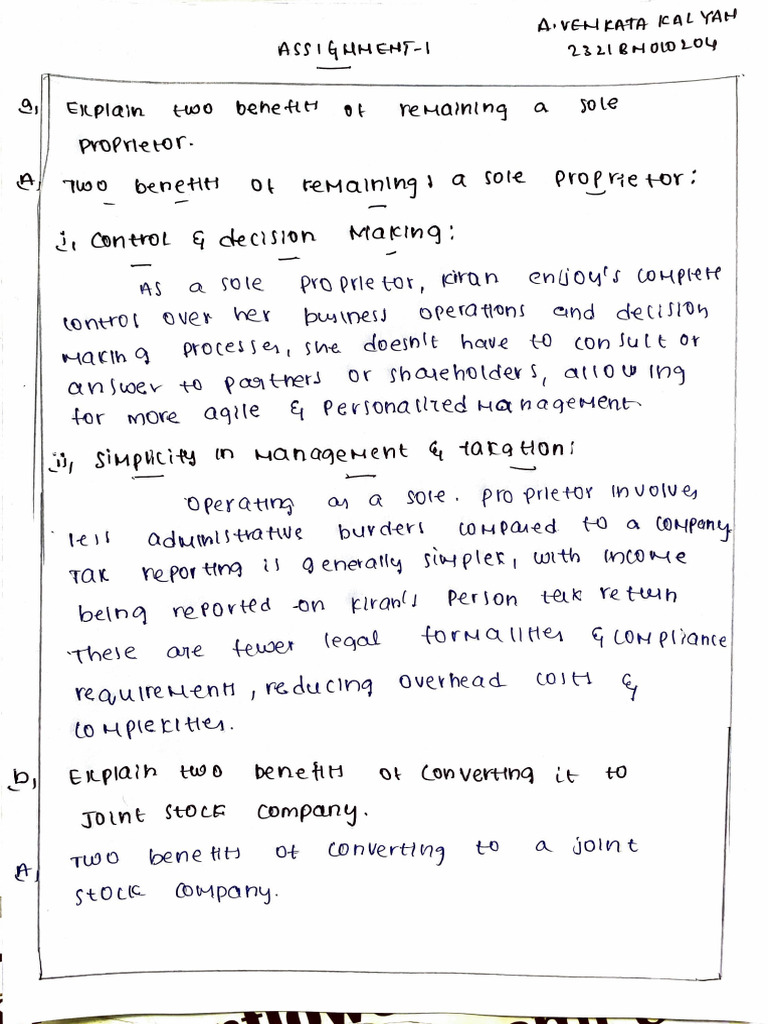 A. VENKATA KALYAN
ASSIGNMENT-1
2321BN010204
a, Explain two benefits of remaining a sole
proprietor.
A, Two benefits of remaining a sole proprietor:
i, control & decision Making:
As a sole proprietor, kiran enjoy's complete
control over her business operations and decision
making processes, she doesn't have to consult or
answer to partners or shareholders, allowing
for more agile & personalized management.
ii, simplicity in management & taxation:
operating as a sole. proprietor involves
less administrative burders compared to a company
Tax reporting is generally simpler, with income
being reported on kiran's person tax return
These are fewer legal formalities & compliance
requirements, reducing overhead costs &
complexities.
b, Explain two benefits of converting it to
Joint stock company.
A, Two benefits of converting to a joint
stock company.